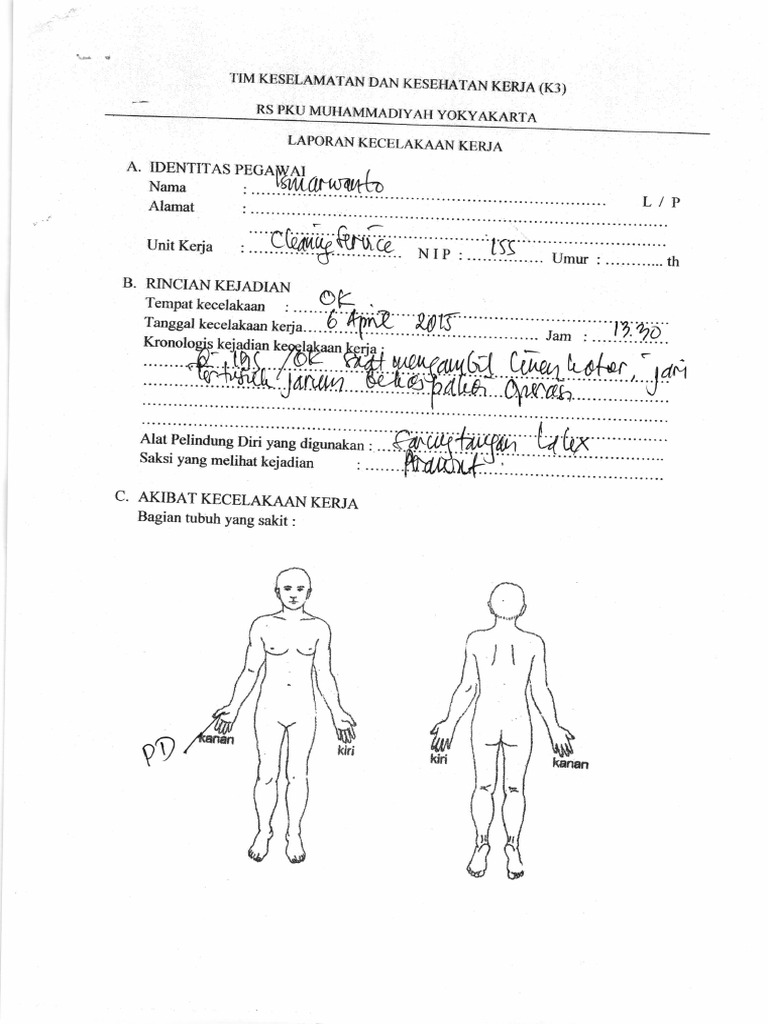 TIM KESELAMATAN DAN KESEHATAN KERJA (K3)
RS PKU MUHAMMADIYAH YOKYAKARTA
LAPORAN KECELAKAAN KERJA
A. IDENTITAS PEGAWAI
Nama : Ismarwanto L / P
Alamat :
Unit Kerja : Cleaning Service N I P : ISS Umur : ........... th
B. RINCIAN KEJADIAN
Tempat kecelakaan : OK
Tanggal kecelakaan kerja 6 April 2015 Jam : 13.30
Kronologis kejadian kecelakaan kerja :
Di IBS / OK saat mengambil linen kotor, jari
tertusuk jarum bekas pakai operasi
Alat Pelindung Diri yang digunakan : Sarung tangan Latex
Saksi yang melihat kejadian : Perawat
C. AKIBAT KECELAKAAN KERJA
Bagian tubuh yang sakit :
PD kanan kiri kiri kanan